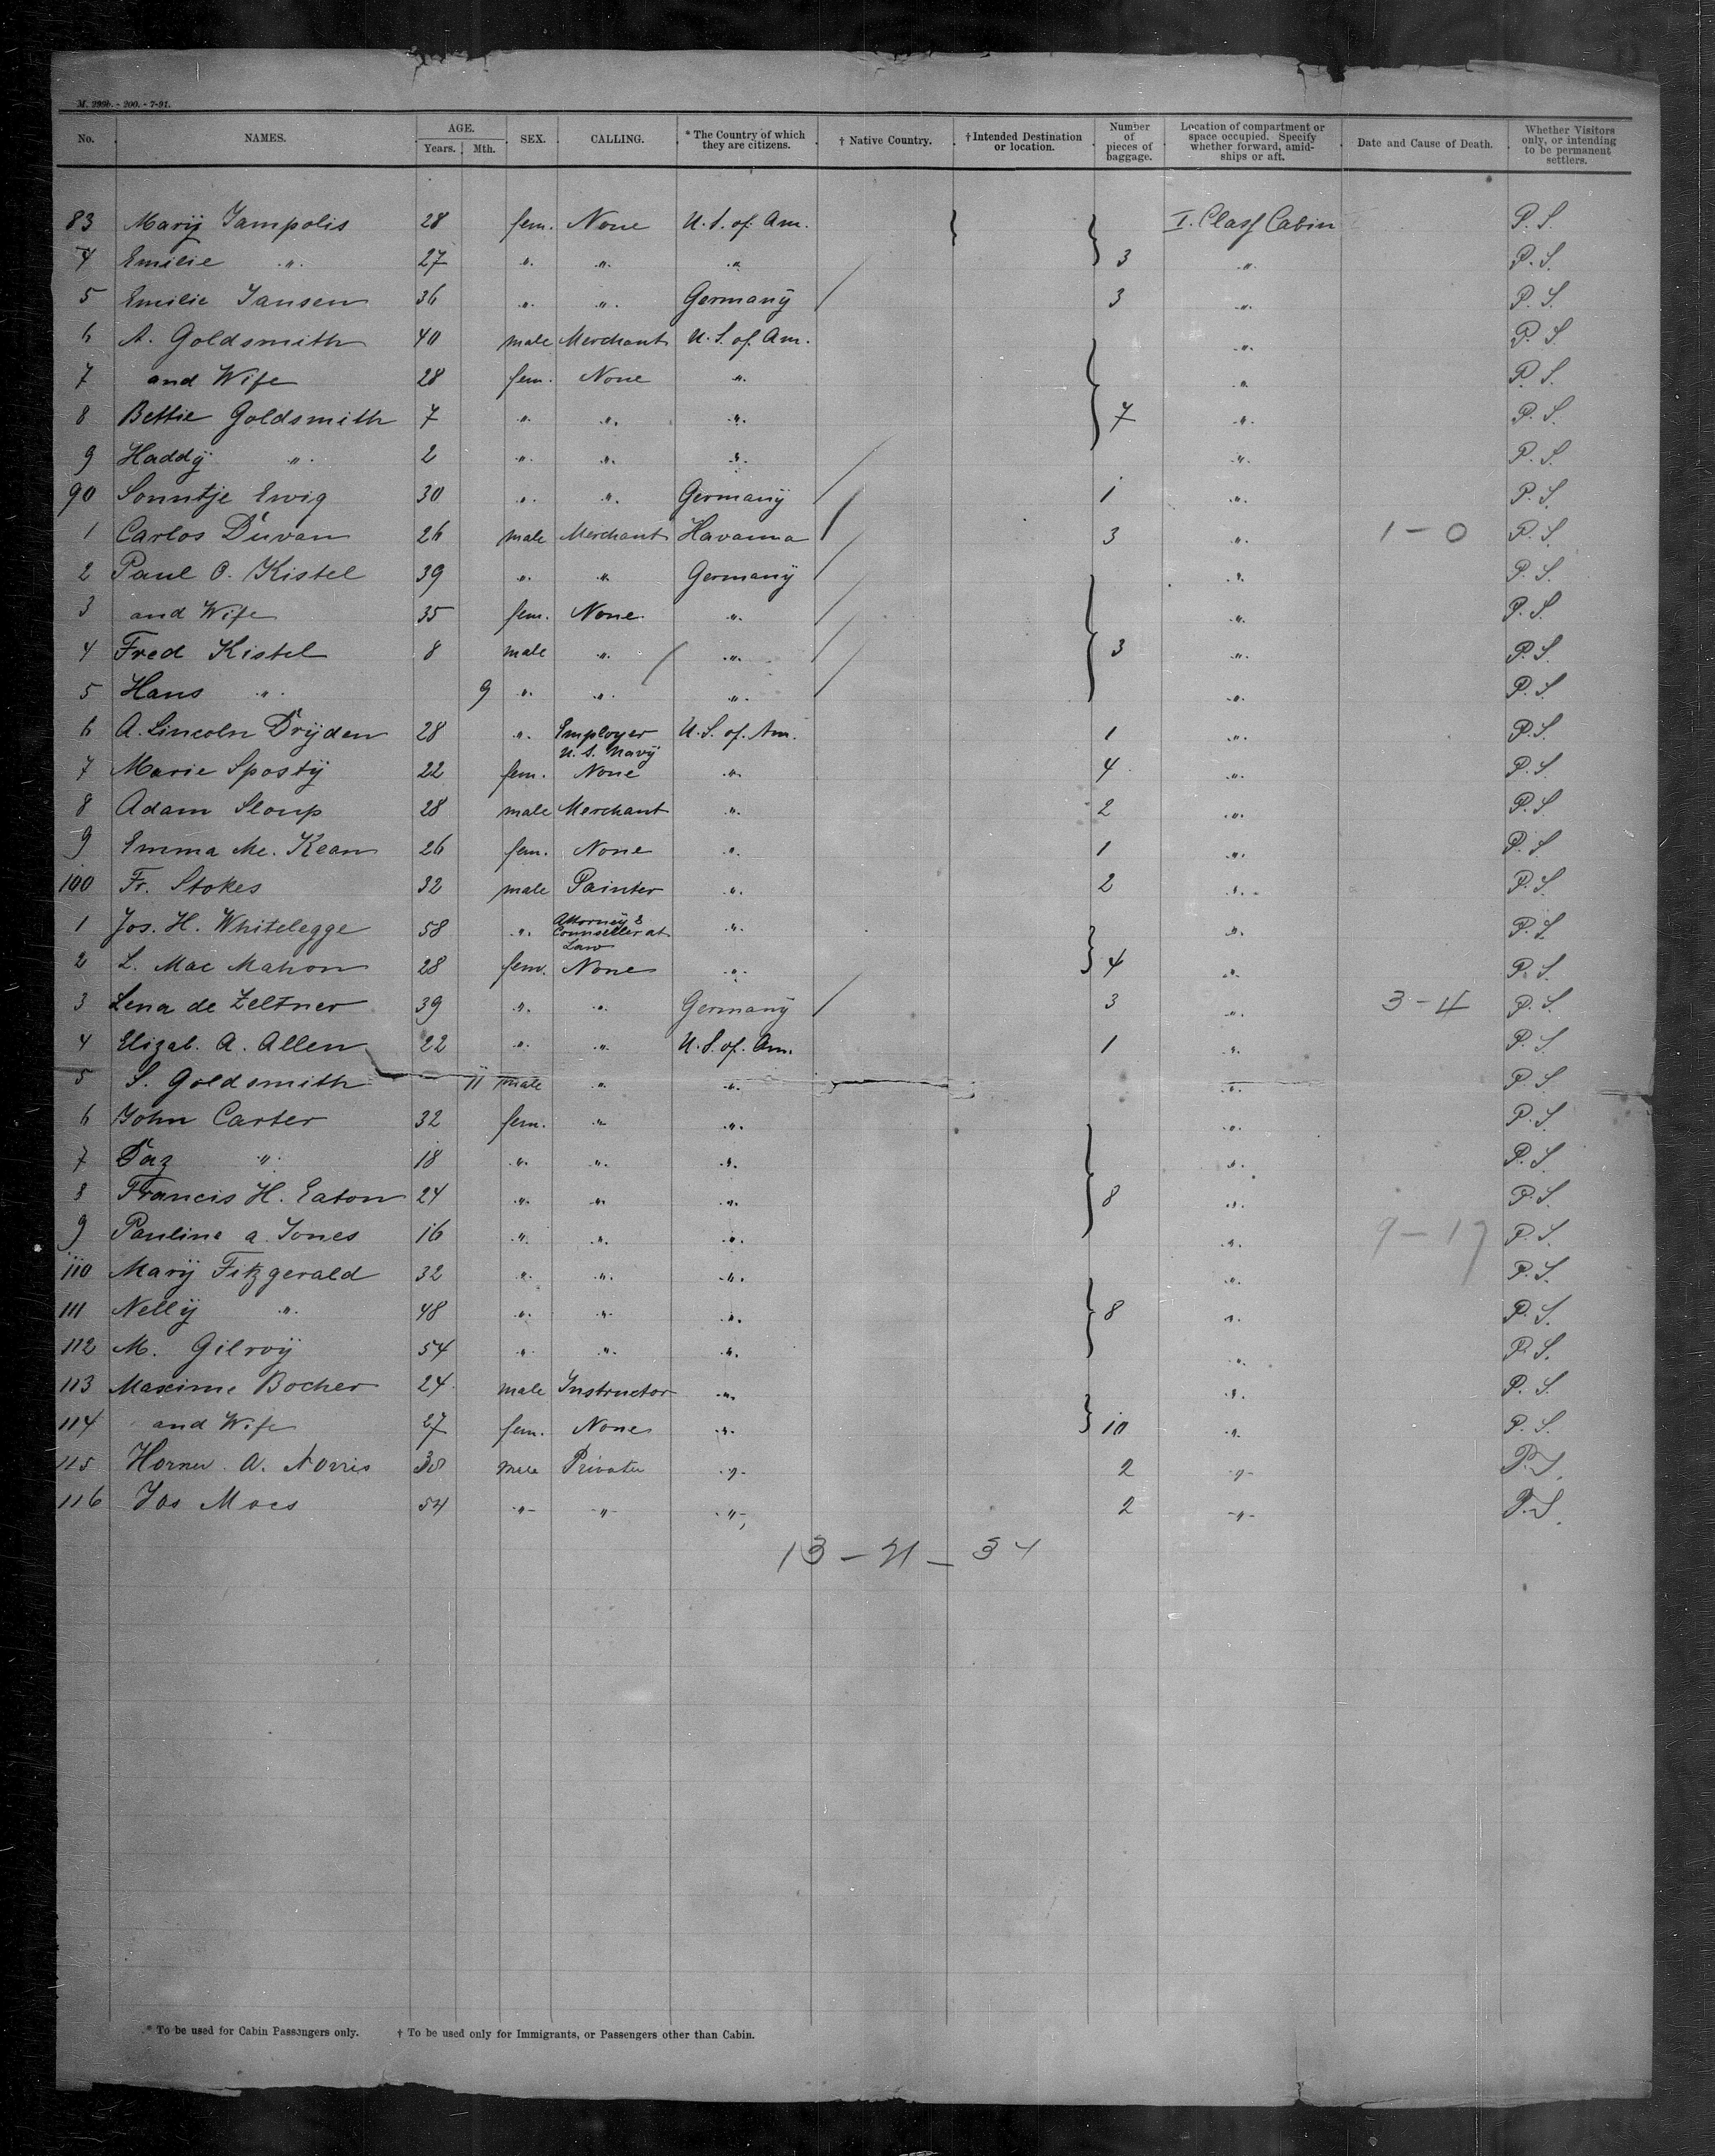 M. 299b. - 200. - 7-91.
No. NAMES. AGE. Years. Mth. SEX. CALLING. * The Country of which they are citizens. † Native Country. † Intended Destination or location. Number of pieces of baggage. Location of compartment or space occupied. Specify whether forward, amidships or aft. Date and Cause of Death. Whether Visitors only, or intending to be permanent settlers.
83 Marÿ Jampolis 28 fem. None U. S. of. Am. I. Class Cabin P. S.
4 Emilie " 27 " " " 3 " P. S.
5 Emilie Jansen 36 " " Germanÿ 3 " P. S.
6 A. Goldsmith 40 male Merchant U. S. of. Am. " P. S.
7 and Wife 28 fem. None " " P. S.
8 Bettie Goldsmith 7 " " " 7 " P. S.
9 Haddÿ " 2 " " " " P. S.
90 Sonntje Ewig 30 " " Germanÿ 1 " P. S.
1 Carlos Duvan 26 male Merchant Havanna 3 " 1 - 0 P. S.
2 Paul O. Kistel 39 " " Germanÿ " P. S.
3 and Wife 35 fem. None " " P. S.
4 Fred Kistel 8 male " " 3 " P. S.
5 Hans " 9 " " " " P. S.
6 A. Lincoln Drÿden 28 " Employer U. S. Navÿ U. S. of. Am. 1 " P. S.
7 Marie Spostÿ 22 fem. None " 4 " P. S.
8 Adam Sloup 28 male Merchant " 2 " P. S.
9 Emma Mc. Kean 26 fem. None " 1 " P. S.
100 Fr. Stokes 32 male Painter " 2 " P. S.
1 Jos. H. Whitelegge 58 " Attorneÿ & Counseller at Law " " P. S.
2 L. Mac Mahon 28 fem. None " 4 " P. S.
3 Lena de Zeltner 39 " " Germanÿ 3 " 3 - 4 P. S.
4 Elizab. A. Allen 22 " " U. S. of. Am. 1 " P. S.
5 S. Goldsmith 11 male " " " P. S.
6 John Carter 32 fem. " " " P. S.
7 " 18 " " " " P. S.
8 Francis H. Eaton 24 " " " 8 " P. S.
9 Pauline a. Jones 16 " " " " 9 - 17 P. S.
110 Marÿ Fitzgerald 32 " " " " P. S.
111 Nellÿ " 48 " " " 8 " P. S.
112 M. Gilroÿ 54 " " " " P. S.
113 Maxime Bocher 24 male Instructor " " P. S.
114 and Wife 27 fem. None " 10 " P. S.
115 A. Norris 30 male Private " 2 " P. S.
116 Jos Moes 54 " " " 2 " P. S.
13 - 21 - 34
* To be used for Cabin Passengers only. † To be used only for Immigrants, or Passengers other than Cabin.